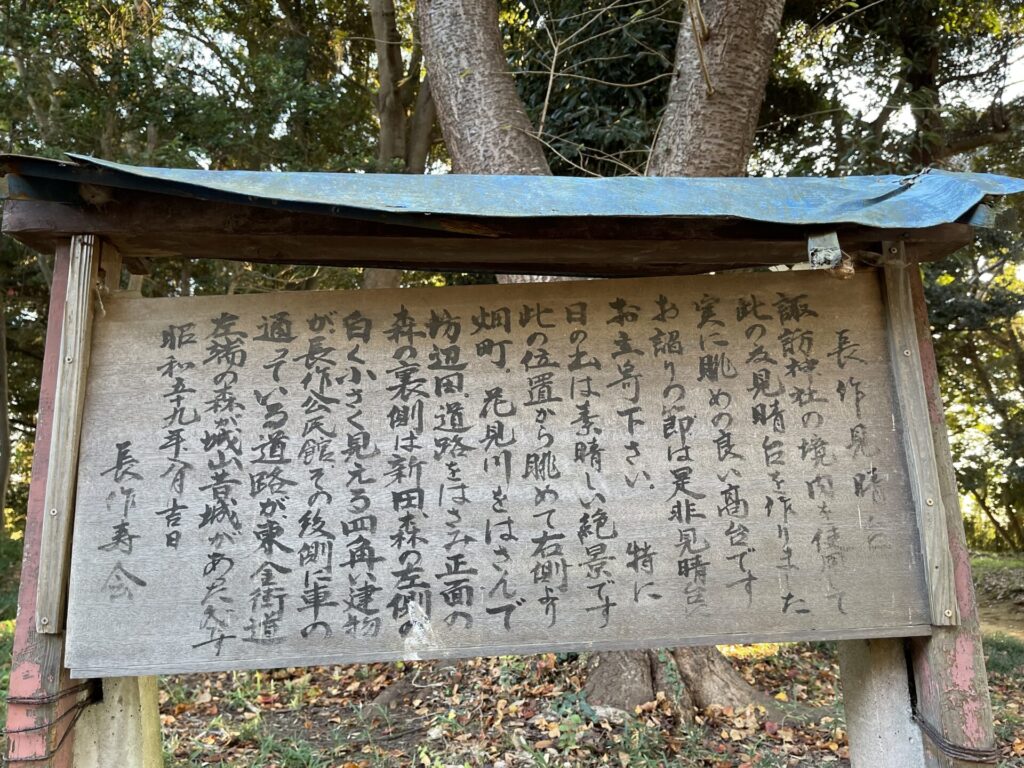 長作見晴台
諏訪神社の境内を使用して
此の友見晴台を作りました
実に眺めの良い高台です
お詣りの節は是非見晴台
お立寄下さい。特に
日の出は素晴しい絶景です
此の位置から眺めて右側より
畑町、花見川をはさんで
坊辺田、道路をはさみ正面の
森の裏側は新田、森の左側の
白く小さく見える四角い建物
が長作公民館、その後側に車の
通っている道路が、東金街道
左端の森が城山、昔城があった
昭和五十九年 月吉日
長作寿会